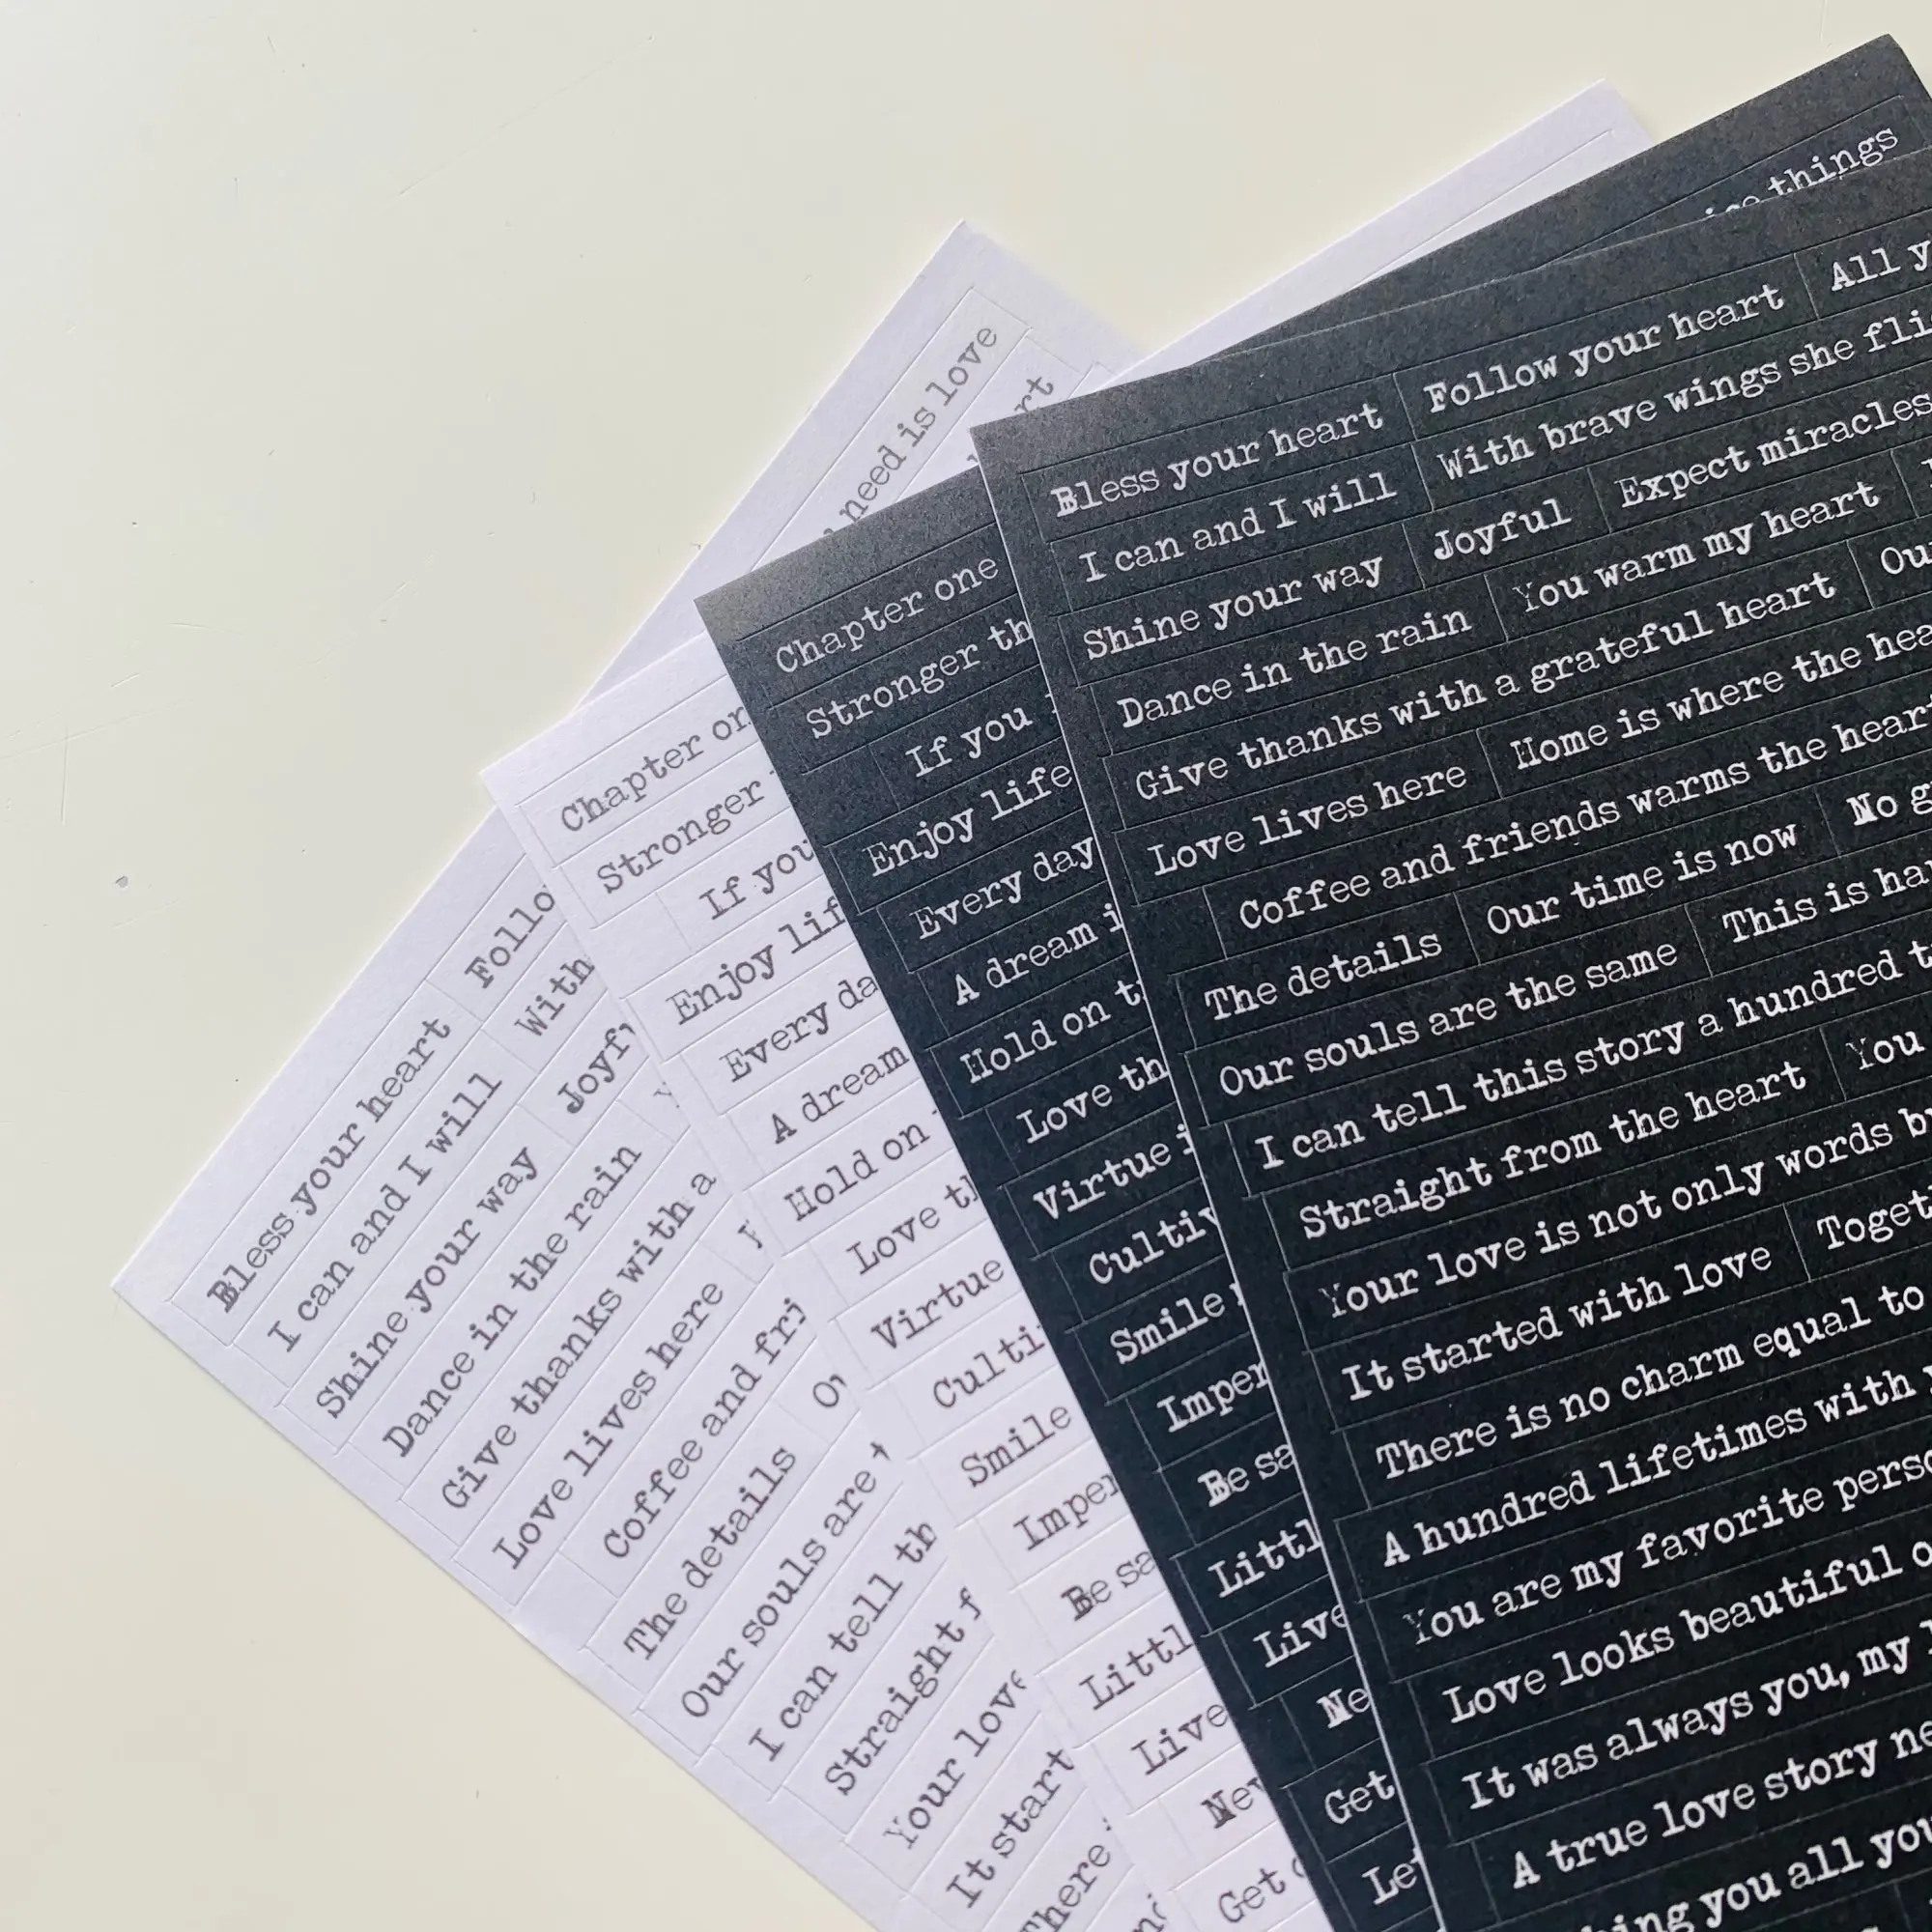 Bless your heart Follow your heart All
I can and I will With brave wings she
Shine your way Joyful Expect miracles
Dance in the rain You warm my heart
Give thanks with a grateful heart
Love lives here Home is where the
Coffee and friends warms the
The details Our time is now No
Our souls are the same This is
I can tell this story a hundred
Straight from the heart You
Your love is not only words
It started with love
There is no charm equal to
A hundred lifetimes with
You are my favorite
Love looks beautiful
It was always you, my
A true love story
you all
things
Chapter one
Stronger
If you
Enjoy life
Every day
A dream
Hold on
Love
Virtue
Smile
Be
Live
Get
Chapter
Stronger
If you
Enjoy
Every
A dream
Hold on
Love
Virtue
Smile
Be
Live
Get
need is love
Bless your heart
I can and I will With
Shine your way
Dance in the rain
Give thanks with a
Love lives here
Coffee and
The details
Our souls are
I can tell
Straight
Your love
It
There